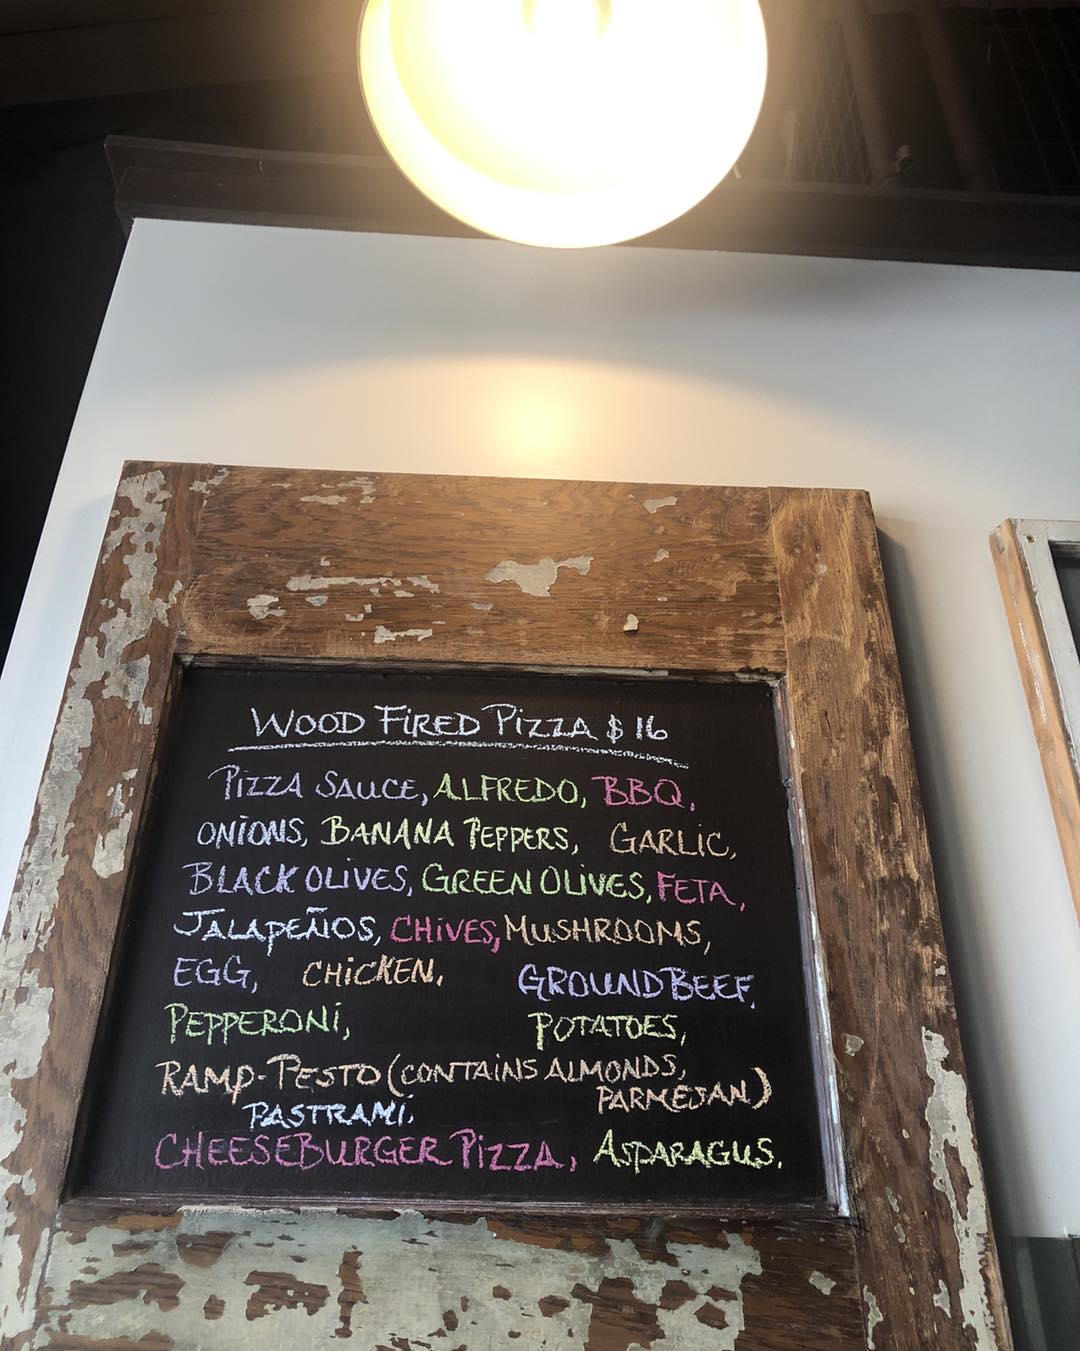 WOOD FIRED PIZZA $16
PIZZA SAUCE, ALFREDO, BBQ,
ONIONS, BANANA PEPPERS, GARLIC,
BLACK OLIVES, GREEN OLIVES, FETA,
JALAPEÑOS, CHIVES, MUSHROOMS,
EGG, CHICKEN, GROUND BEEF,
PEPPERONI, POTATOES,
RAMP-PESTO (CONTAINS ALMONDS,
PARMESAN)
PASTRAMI,
CHEESEBURGER PIZZA, ASPARAGUS.